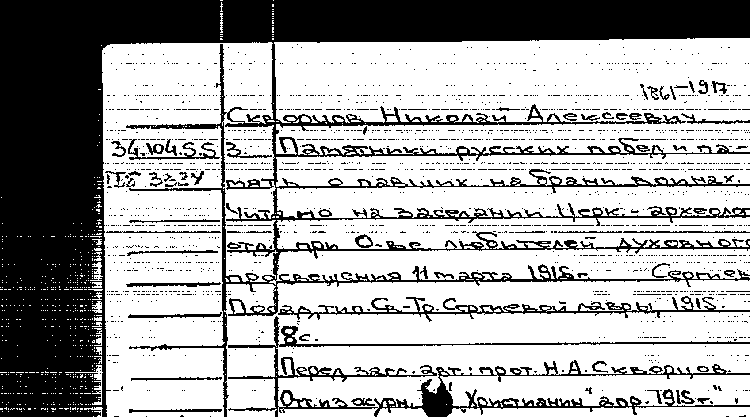 1861-1917
Скворцов, Николай Алексеевич.
34.104.5.5 3. Памятники русских побед и па-
IIБ 3334 мять о павших на брани воинах.
Читано на заседании Церк.-археолог
отд. при О-ве любителей духовного
просвещения 11 марта 1915 г. Сергиев
Посад, тип. Св.-Тр. Сергиевой лавры, 1915.
8 с.
Перед загл. авт.: прот. Н.А. Скворцов.
Отт. из журн. „Христианин" апр. 1915 г.".